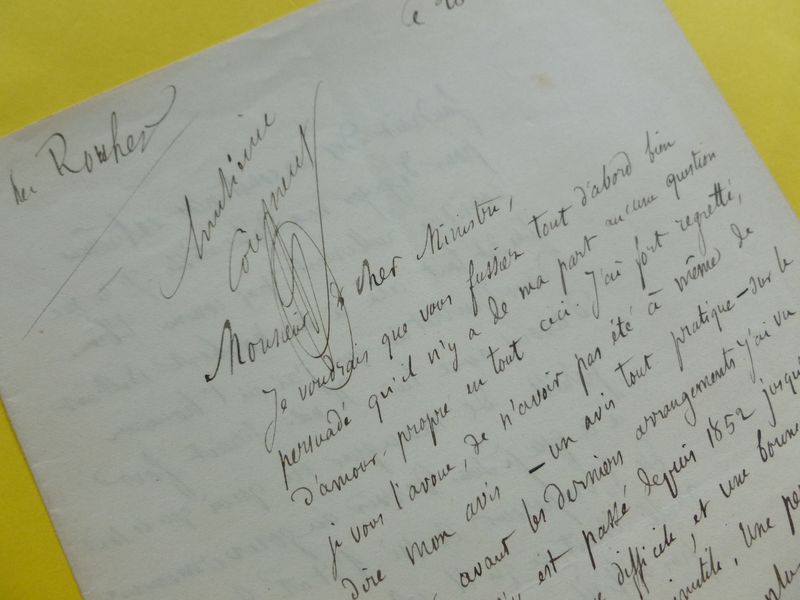 Ce 20
Rouher
Monsieur & cher Ministre,
Je voudrais que vous fussiez tout d'abord bien
persuadé qu'il n'y a de ma part aucune question
d'amour-propre en tout ceci. J'ai fort regretté,
je vous l'avoue, de n'avoir pas été à même de
dire mon avis – un avis tout pratique – sur le
avant les derniers arrangements. J'ai vu
est passé depuis 1852 jusqu
difficile, et une bonne
inutile. Une pe